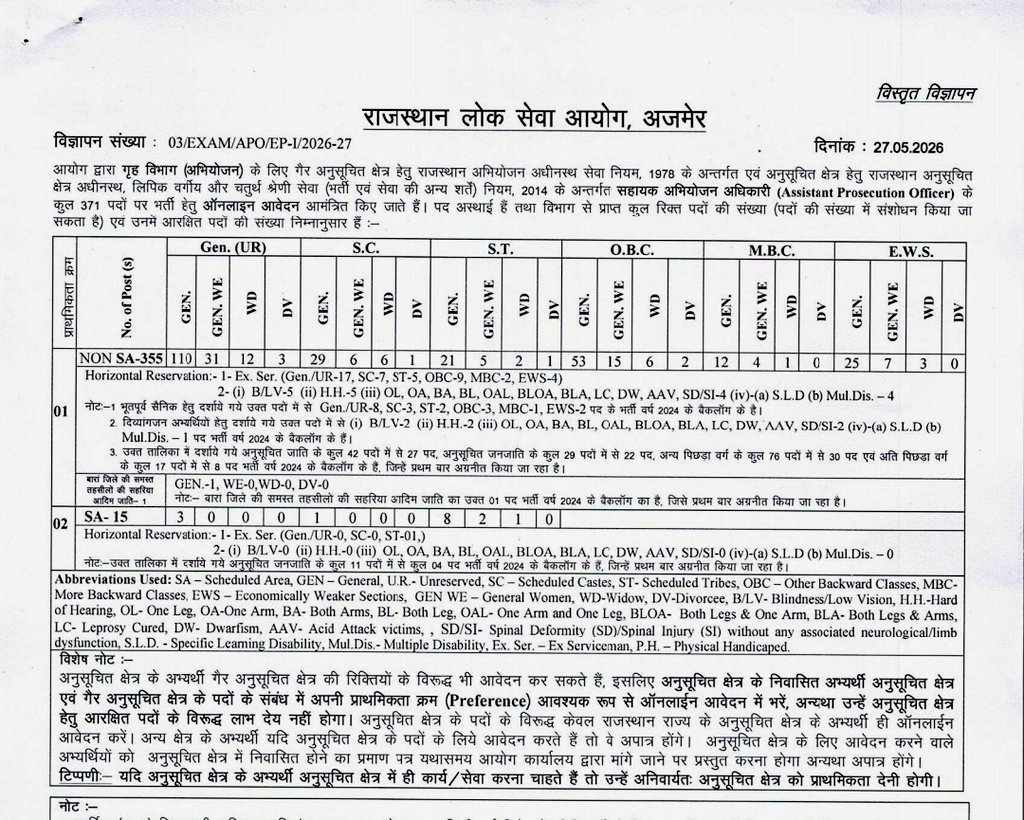 विस्तृत विज्ञापन
राजस्थान लोक सेवा आयोग, अजमेर
विज्ञापन संख्या : 03/EXAM/APO/EP-I/2026-27 दिनांक : 27.05.2026
आयोग द्वारा गृह विभाग (अभियोजन) के लिए गैर अनुसूचित क्षेत्र हेतु राजस्थान अभियोजन अधीनस्थ सेवा नियम, 1978 के अन्तर्गत एवं अनुसूचित क्षेत्र हेतु राजस्थान अनुसूचित
क्षेत्र अधीनस्थ, लिपिक वर्गीय और चतुर्थ श्रेणी सेवा (भर्ती एवं सेवा की अन्य शर्तें) नियम, 2014 के अन्तर्गत सहायक अभियोजन अधिकारी (Assistant Prosecution Officer) के
कुल 371 पदों पर भर्ती हेतु ऑनलाइन आवेदन आमंत्रित किए जाते हैं। पद अस्थाई हैं तथा विभाग से प्राप्त कुल रिक्त पदों की संख्या (पदों की संख्या में संशोधन किया जा
सकता है) एवं उनमें आरक्षित पदों की संख्या निम्नानुसार हैं :–
प्राथमिकता क्रम No. of Post (s) Gen. (UR) S.C. S.T. O.B.C. M.B.C. E.W.S.
GEN. GEN. WE WD DV GEN. GEN. WE WD DV GEN. GEN. WE WD DV GEN. GEN. WE WD DV GEN. GEN. WE WD DV GEN. GEN. WE WD DV
01 NON SA-355 110 31 12 3 29 6 6 1 21 5 2 1 53 15 6 2 12 4 1 0 25 7 3 0
Horizontal Reservation:- 1- Ex. Ser. (Gen./UR-17, SC-7, ST-5, OBC-9, MBC-2, EWS-4)
2- (i) B/LV-5 (ii) H.H.-5 (iii) OL, OA, BA, BL, OAL, BLOA, BLA, LC, DW, AAV, SD/SI-4 (iv)-(a) S.L.D (b) Mul.Dis. – 4
नोटः–1 भूतपूर्व सैनिक हेतु दर्शाये गये उक्त पदों में से Gen./UR-8, SC-3, ST-2, OBC-3, MBC-1, EWS-2 पद के भर्ती वर्ष 2024 के बैकलॉग के है।
2. दिव्यांगजन अभ्यर्थियों हेतु दर्शाये गये उक्त पदों में से (i) B/LV-2 (ii) H.H.-2 (iii) OL, OA, BA, BL, OAL, BLOA, BLA, LC, DW, AAV, SD/SI-2 (iv)-(a) S.L.D (b)
Mul.Dis. – 1 पद भर्ती वर्ष 2024 के बैकलॉग के हैं।
3. उक्त तालिका में दर्शाये गये अनुसूचित जाति के कुल 42 पदों में से 27 पद, अनुसूचित जनजाति के कुल 29 पदों में से 22 पद, अन्य पिछड़ा वर्ग के कुल 76 पदों में से 30 पद एवं अति पिछड़ा वर्ग
के कुल 17 पदों में से 8 पद भर्ती वर्ष 2024 के बैकलॉग के हैं, जिन्हें प्रथम बार अग्रनीत किया जा रहा है।
बारां जिले की समस्त
तहसीलों की सहरिया
आदिम जाति- 1
GEN.-1, WE-0,WD-0, DV-0
नोटः– बारां जिले की समस्त तहसीलों की सहरिया आदिम जाति का उक्त 01 पद भर्ती वर्ष 2024 के बैकलॉग का है, जिसे प्रथम बार अग्रनीत किया जा रहा है।
02 SA- 15 3 0 0 0 1 0 0 0 8 2 1 0
Horizontal Reservation:- 1- Ex. Ser. (Gen./UR-0, SC-0, ST-01,)
2- (i) B/LV-0 (ii) H.H.-0 (iii) OL, OA, BA, BL, OAL, BLOA, BLA, LC, DW, AAV, SD/SI-0 (iv)-(a) S.L.D (b) Mul.Dis. – 0
नोटः–उक्त तालिका में दर्शाये गये अनुसूचित जनजाति के कुल 11 पदों में से कुल 04 पद भर्ती वर्ष 2024 के बैकलॉग के हैं, जिन्हें प्रथम बार अग्रनीत किया जा रहा है।
Abbreviations Used: SA – Scheduled Area, GEN – General, U.R.- Unreserved, SC – Scheduled Castes, ST- Scheduled Tribes, OBC – Other Backward Classes, MBC-
More Backward Classes, EWS – Economically Weaker Sections, GEN WE – General Women, WD-Widow, DV-Divorcee, B/LV- Blindness/Low Vision, H.H.-Hard
of Hearing, OL- One Leg, OA-One Arm, BA- Both Arms, BL- Both Leg, OAL- One Arm and One Leg, BLOA- Both Legs & One Arm, BLA- Both Legs & Arms,
LC- Leprosy Cured, DW- Dwarfism, AAV- Acid Attack victims, , SD/SI- Spinal Deformity (SD)/Spinal Injury (SI) without any associated neurological/limb
dysfunction, S.L.D. - Specific Learning Disability, Mul.Dis.- Multiple Disability, Ex. Ser. – Ex Serviceman, P.H. – Physical Handicaped.
विशेष नोट :–
अनुसूचित क्षेत्र के अभ्यर्थी गैर अनुसूचित क्षेत्र की रिक्तियों के विरूद्ध भी आवेदन कर सकते हैं, इसलिए अनुसूचित क्षेत्र के निवासित अभ्यर्थी अनुसूचित क्षेत्र
एवं गैर अनुसूचित क्षेत्र के पदों के संबंध में अपनी प्राथमिकता क्रम (Preference) आवश्यक रूप से ऑनलाईन आवेदन में भरें, अन्यथा उन्हें अनुसूचित क्षेत्र
हेतु आरक्षित पदों के विरूद्ध लाभ देय नहीं होगा। अनुसूचित क्षेत्र के पदों के विरूद्ध केवल राजस्थान राज्य के अनुसूचित क्षेत्र के अभ्यर्थी ही ऑनलाईन
आवेदन करें। अन्य क्षेत्र के अभ्यर्थी यदि अनुसूचित क्षेत्र के पदों के लिये आवेदन करते हैं तो वे अपात्र होंगे। अनुसूचित क्षेत्र के लिए आवेदन करने वाले
अभ्यर्थियों को अनुसूचित क्षेत्र में निवासित होने का प्रमाण पत्र यथासमय आयोग कार्यालय द्वारा मांगे जाने पर प्रस्तुत करना होगा अन्यथा अपात्र होंगे।
टिप्पणीः– यदि अनुसूचित क्षेत्र के अभ्यर्थी अनुसूचित क्षेत्र में ही कार्य/सेवा करना चाहते हैं तो उन्हें अनिवार्यतः अनुसूचित क्षेत्र को प्राथमिकता देनी होगी।
नोट :–